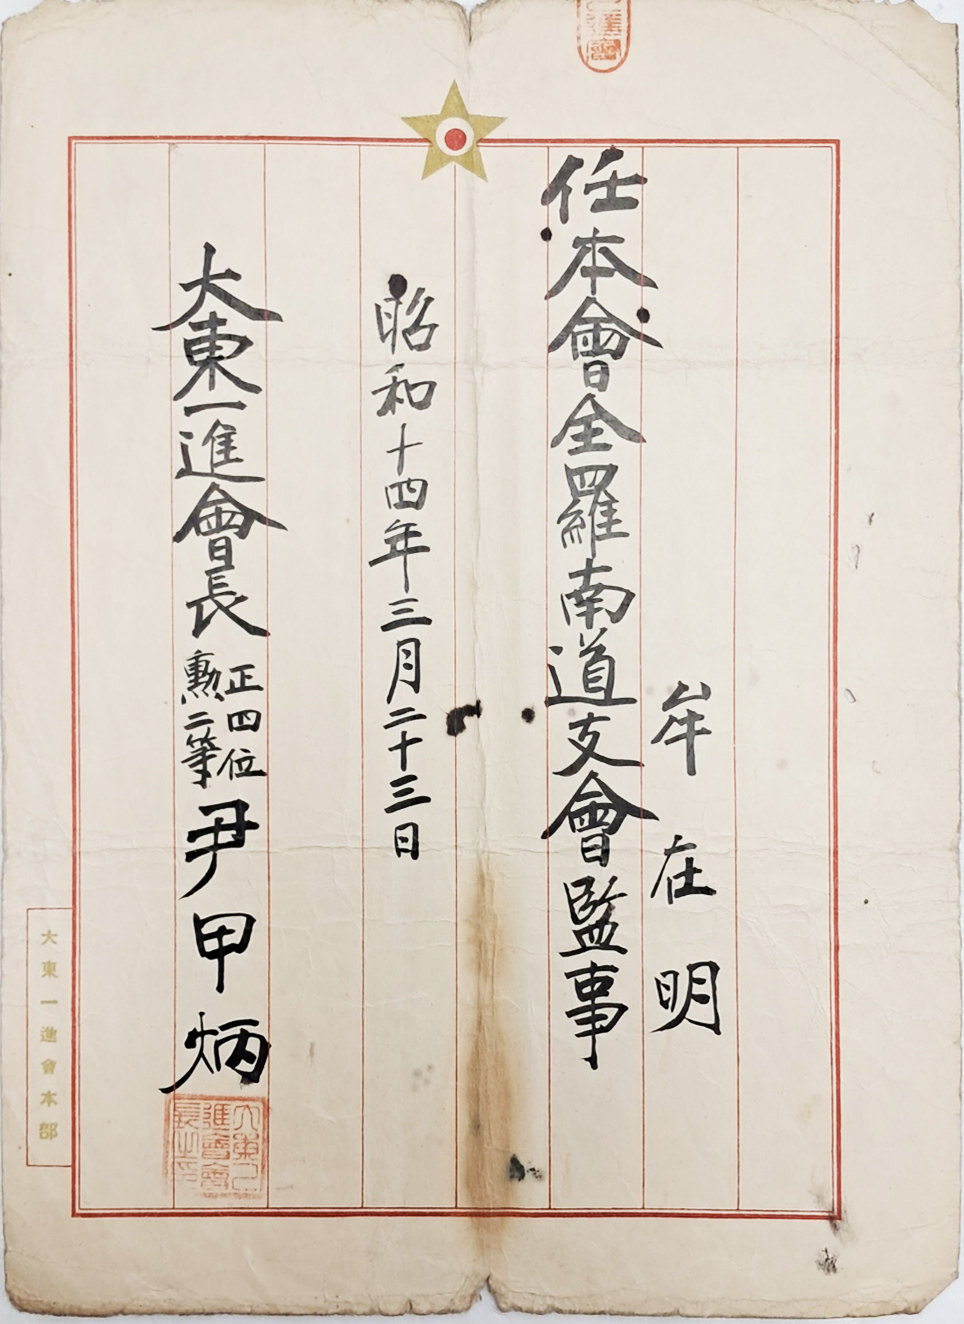 牟在明
任本會全羅南道支會監事
昭和十四年三月二十三日
大東一進會長 正四位 勲二等 尹甲炳
大東一進會會長之印
大東一進會本部